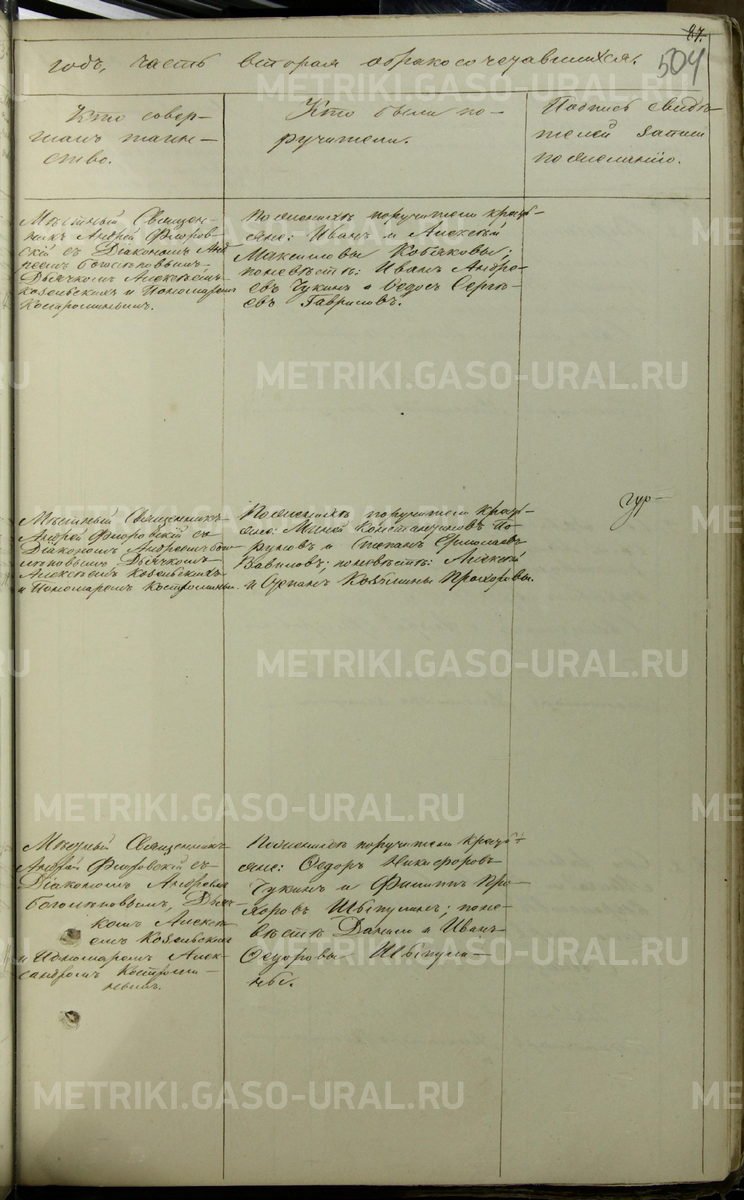 87.
504
годъ, часть вторая о бракосочетавшихся.
Кто совер-
шалъ таин-
ство.
Кто были по-
ручители.
Подпись свидѣ-
телей записи
по желанію.
Мѣстный Священ-
никъ Андрей Флоров-
скій съ Діакономъ Анд-
реемъ Боголѣповымъ
Дьячкомъ Алексѣемъ
Козельскимъ и Пономаремъ
Костроминымъ.
По женихѣ поручители кресть-
яне: Иванъ и Алексѣй
Максимовы Кобяковы;
по невѣстѣ: Иванъ Андре-
евъ Чукинъ и Ѳедоръ Сергѣ-
евъ Гавриловъ.
Мѣстный Священникъ
Андрей Флоровскій съ
Діакономъ Андреемъ Бого-
лѣповымъ, Дьячкомъ
Алексѣемъ Козельскимъ
и Пономаремъ Костромины
По женихѣ поручители кресть-
яне: Константиновъ
и Степанъ Ермолаевъ
Вавиловъ; по невѣстѣ: Алексѣй
и Степанъ Прохоровы.
гур-
Мѣстный Священникъ
Андрей Флоровскій съ
Діакономъ Андреемъ
Боголѣповымъ, Дьяч-
комъ Алексѣ-
емъ Козельскимъ
и Пономаремъ Алек-
сандромъ Костроми-
нымъ.
По женихѣ поручители кресть-
яне: Ѳедоръ Никифоровъ
Чукинъ и Филиппъ Про-
хоровъ Шыпулинъ; по не-
вѣстѣ Данило и Иванъ
Ѳедоровы Шыпули-
ны.
METRIKI.GASO-URAL.RU